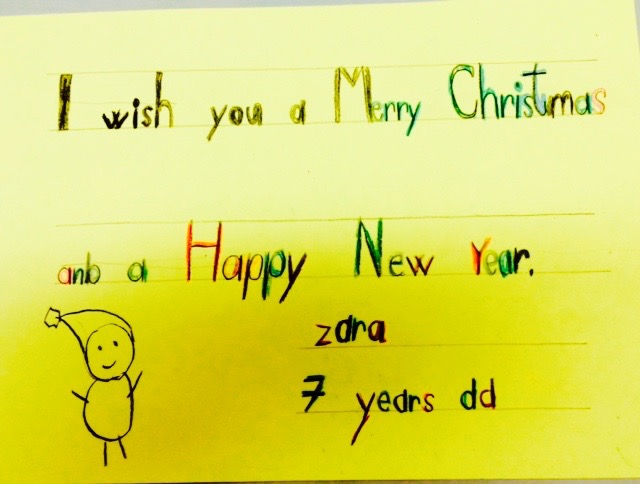 I wish you a Merry Christmas
anb a Happy New Year.
zara
7 years dd